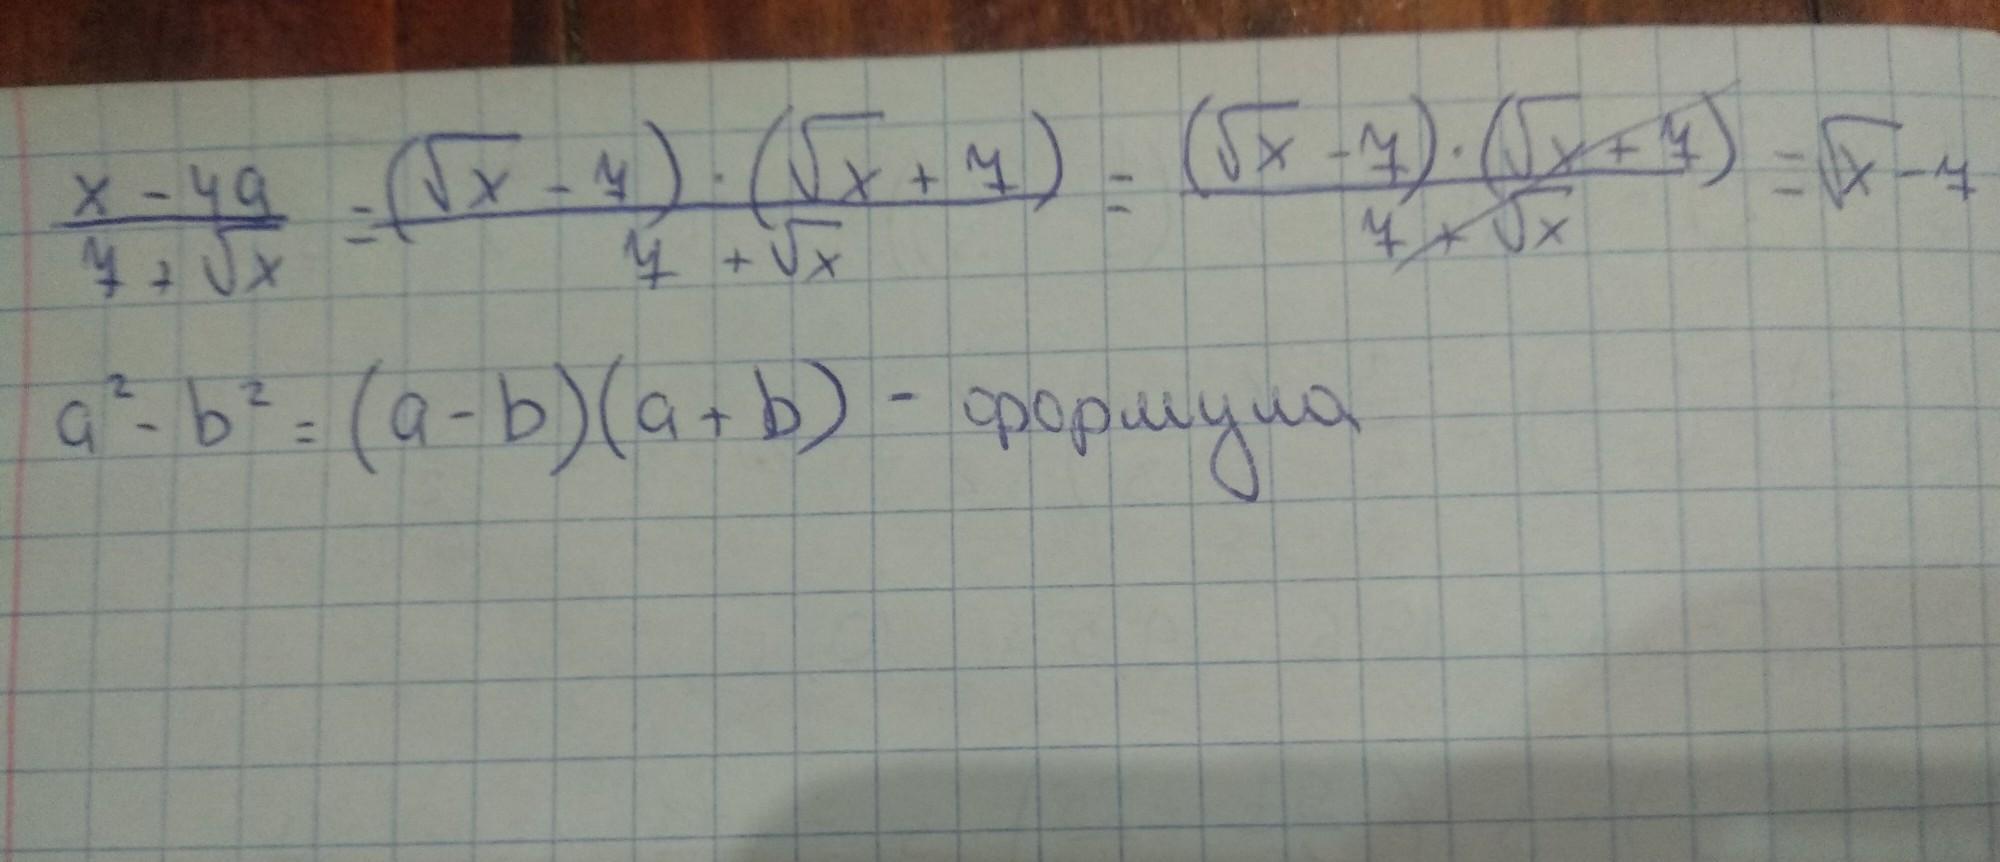 (x - 49)/(7 + √x) = ((√x - 7) · (√x + 7))/(7 + √x) = ((√x - 7) · (√x + 7))/(7 + √x) = √x - 7
a² - b² = (a - b)(a + b) - формула